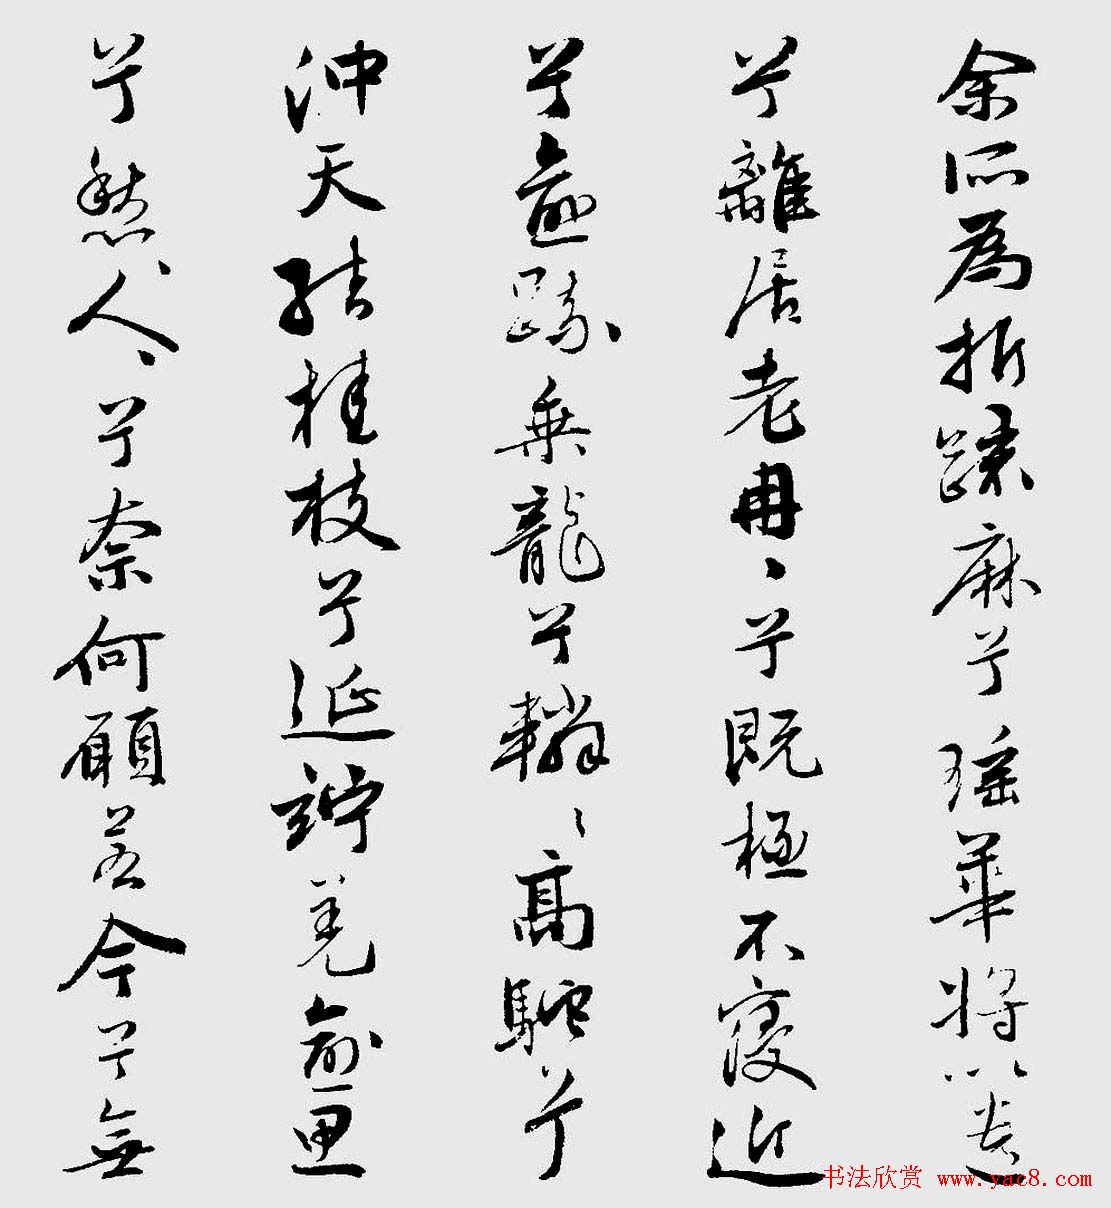 余所為折踈麻兮瑤華將以遺
兮離居老冉、兮既極不寖近
兮愈疏乘龍兮轔、高駝兮
沖天結桂枝兮延竚羌愈思
兮愁、人、兮奈何願若今兮無
书法欣赏 www.yac8.com